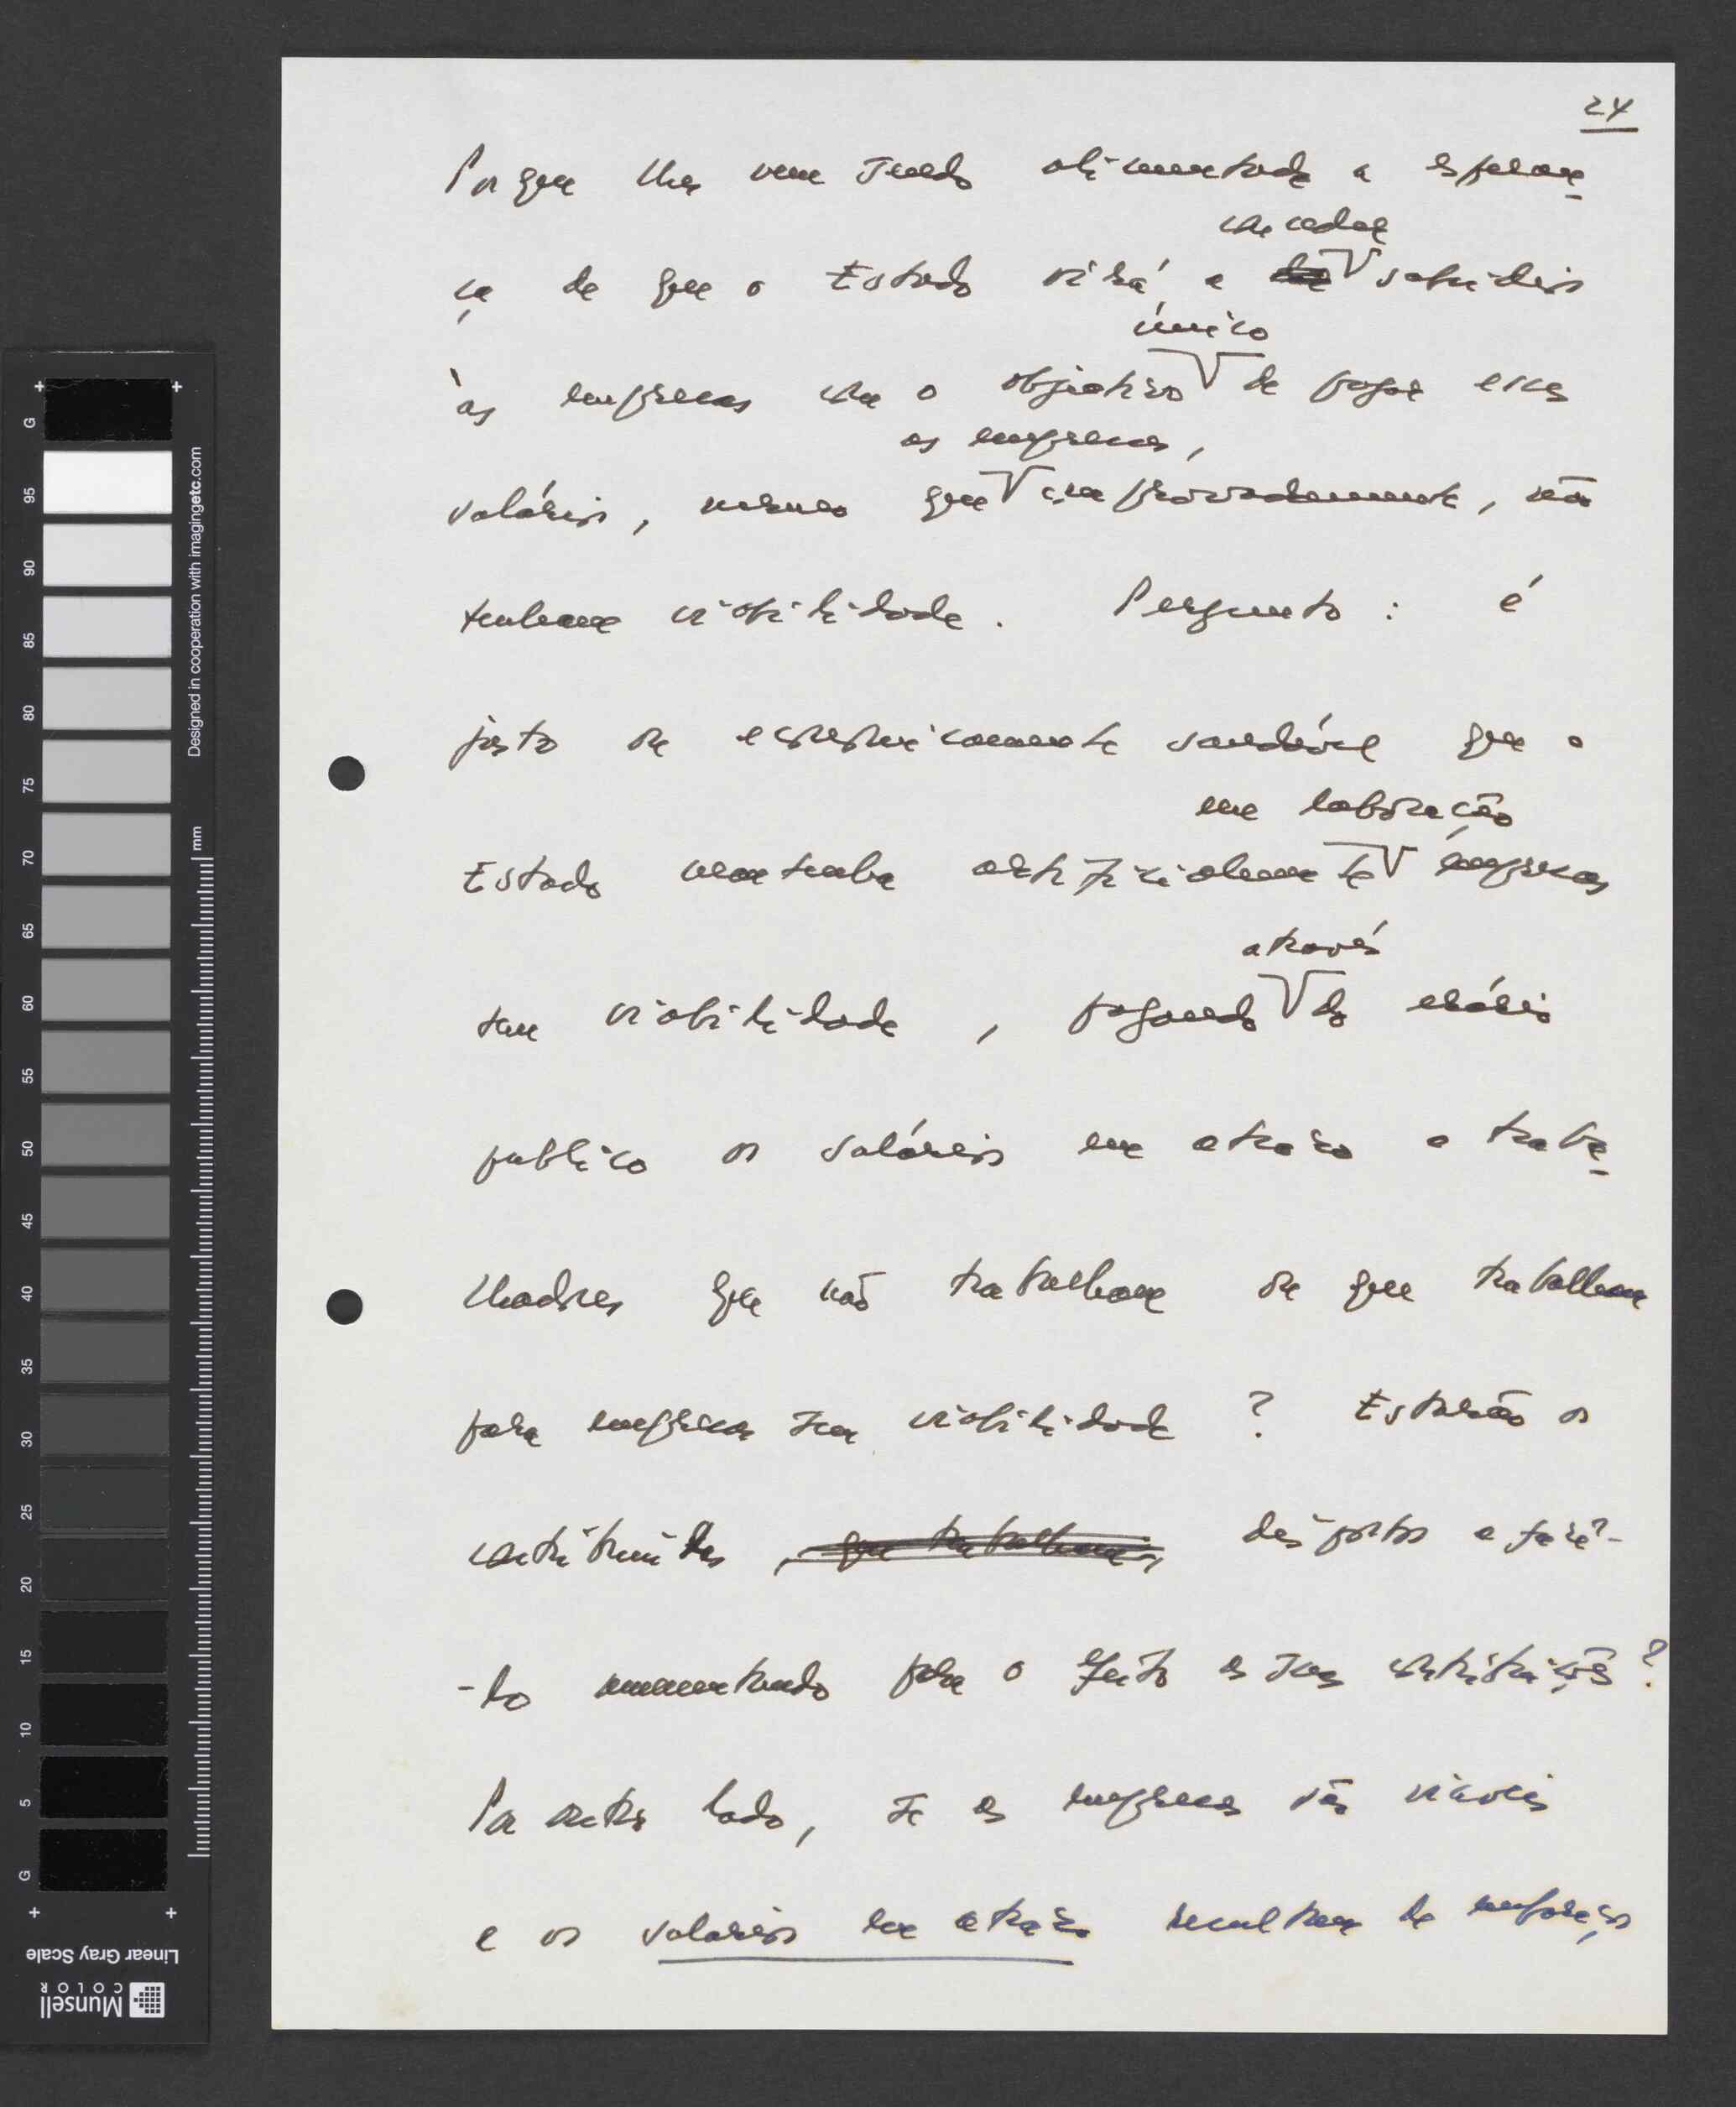 24
Porque lhes vem sendo alimentada a esperan-
conceder
ça de que o Estado virá a dar subsídios
único
às empresas com o objectivo de pagar esses
as empresas,
salários, mesmo que comprovadamente, não
tenham viabilidade. Pergunto: é
justo ou economicamente saudável que o
em laboração
Estado mantenha artificialmente empresas
através
sem viabilidade, pagando do erário
publico os salários em atraso a traba-
lhadores que não trabalham ou que trabalham
para empresas sem viabilidade? Estarão os
contribuintes, que trabalham, dispostos a fazê-
-lo aumentando para o efeito as suas contribuições?
Por outro lado, se as empresas são viáveis
e os salarios em atraso resultam de esforços
G 95 90 85 80 75 70 65 60 55 50 45 40 35 30 25 20 15 10 5 G
Designed in cooperation with imagingetc.com
mm
Linear Gray Scale
Munsell
COLOR